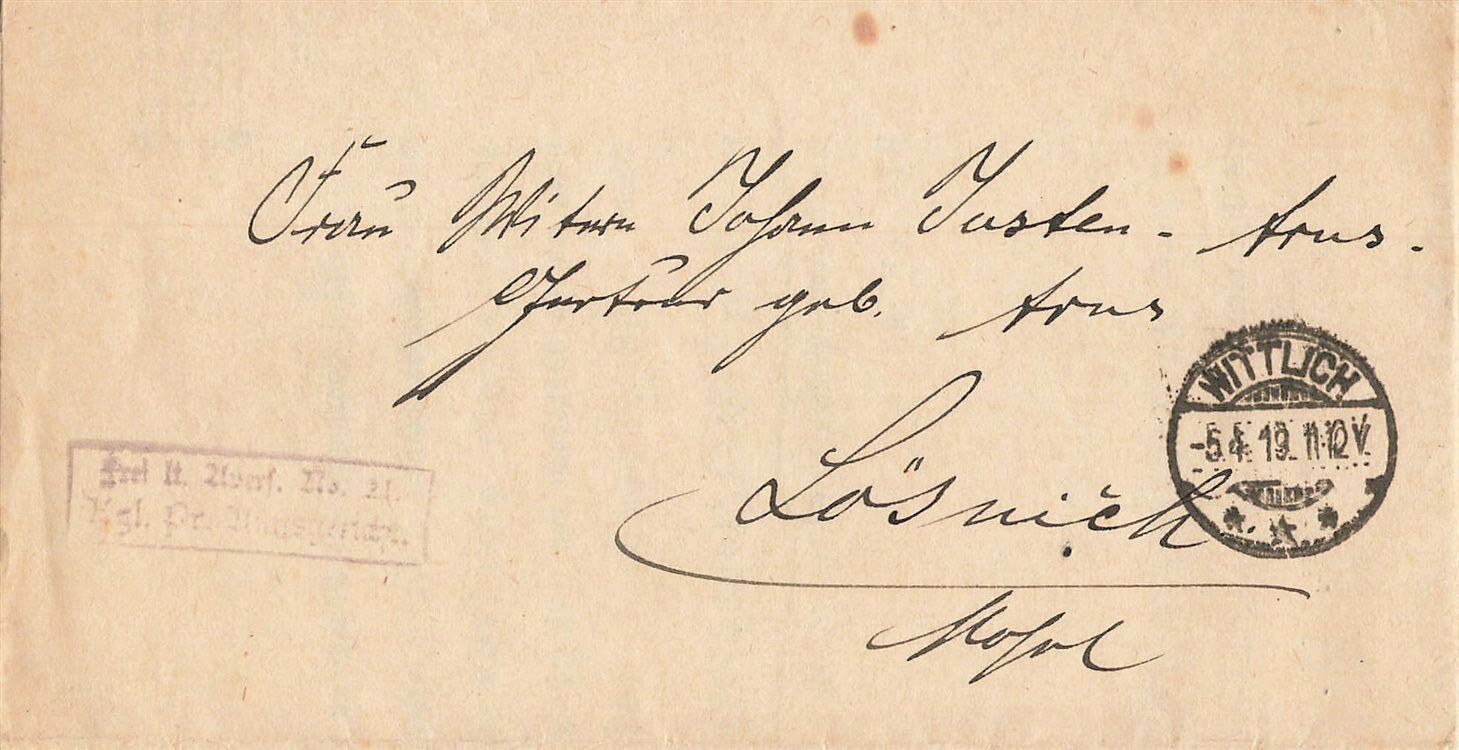 Frau Witwe Johann Justen - Arns -
Gertrud geb. Arns
Lösnich
Mosel
WITTLICH
-5.4.19. 11-12 V.
Frei lt. Avers. No. 21.
Kgl. Pr. Amtsgericht.